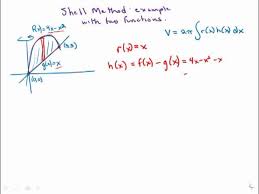 Shell Method: example
with two functions.
f(x)=4x-x²
V = 2π ∫ r(x) h(x) dx
(3,3)
r(x) = x
g(x)=x
h(x) = f(x) - g(x) = 4x-x² -x
(0,0)